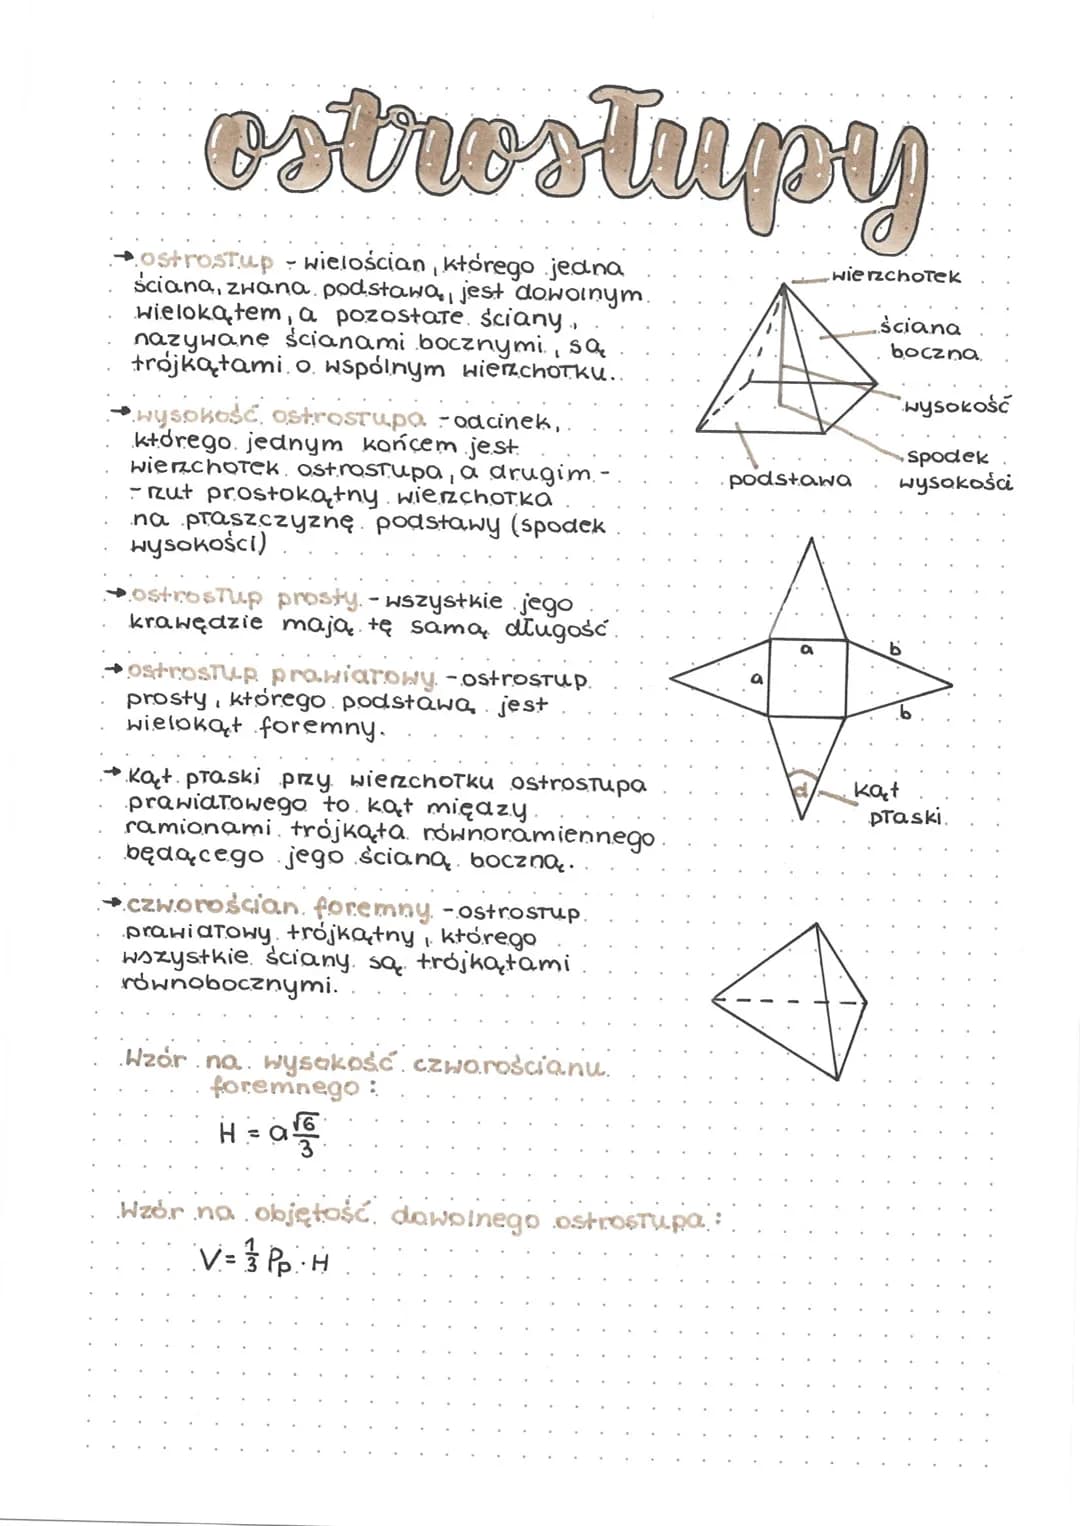 ostrosłupy
→ ostrosłup - wielościan, którego jedna
ściana, zwana podstawą, jest dowolnym
wielokątem, a pozostałe ściany,
nazywane ścianami bocznymi, są
trójkątami o wspólnym wierzchołku.
wierzchołek
ściana
boczna
wysokość
spodek
wysokości
podstawa
→ wysokość ostrosłupa - odcinek,
którego jednym końcem jest
wierzchołek ostrosłupa, a drugim -
- rzut prostokątny wierzchołka
na płaszczyznę podstawy (spodek
wysokości)
→ ostrosłup prosty - wszystkie jego
krawędzie mają tę samą długość
→ ostrosłup prawiałowy - ostrosłup
prosty, którego podstawą jest
wielokąt foremny.
a
b
a
b
α
kąt
płaski
→ Kąt płaski przy wierzchołku ostrosłupa
prawidłowego to kąt między
ramionami trójkąta równoramiennego
będącego jego ścianą boczną.
→ czworościan foremny - ostrosłup
prawidłowy trójkątny, którego
wszystkie ściany są trójkątami
równobocznymi.
Wzór na wysokość czworościanu
foremnego:
H = a√6/3
Wzór na objętość dowolnego ostrosłupa:
V = 1/3 Pp · H